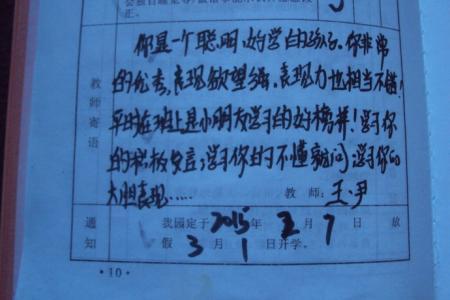 正。
教师寄语
你是一个聪明、好学的孩子。你非常
的优秀,表现欲望强。表现力也相当不错!
平时在班上是小朋友学习的好榜样!学习你
的积极发言;学习你的不懂就问;学习你的
大胆表现……
教 师:王.尹
通知
我园定于2015年2月7日放
假 3月1日开学。
·10·